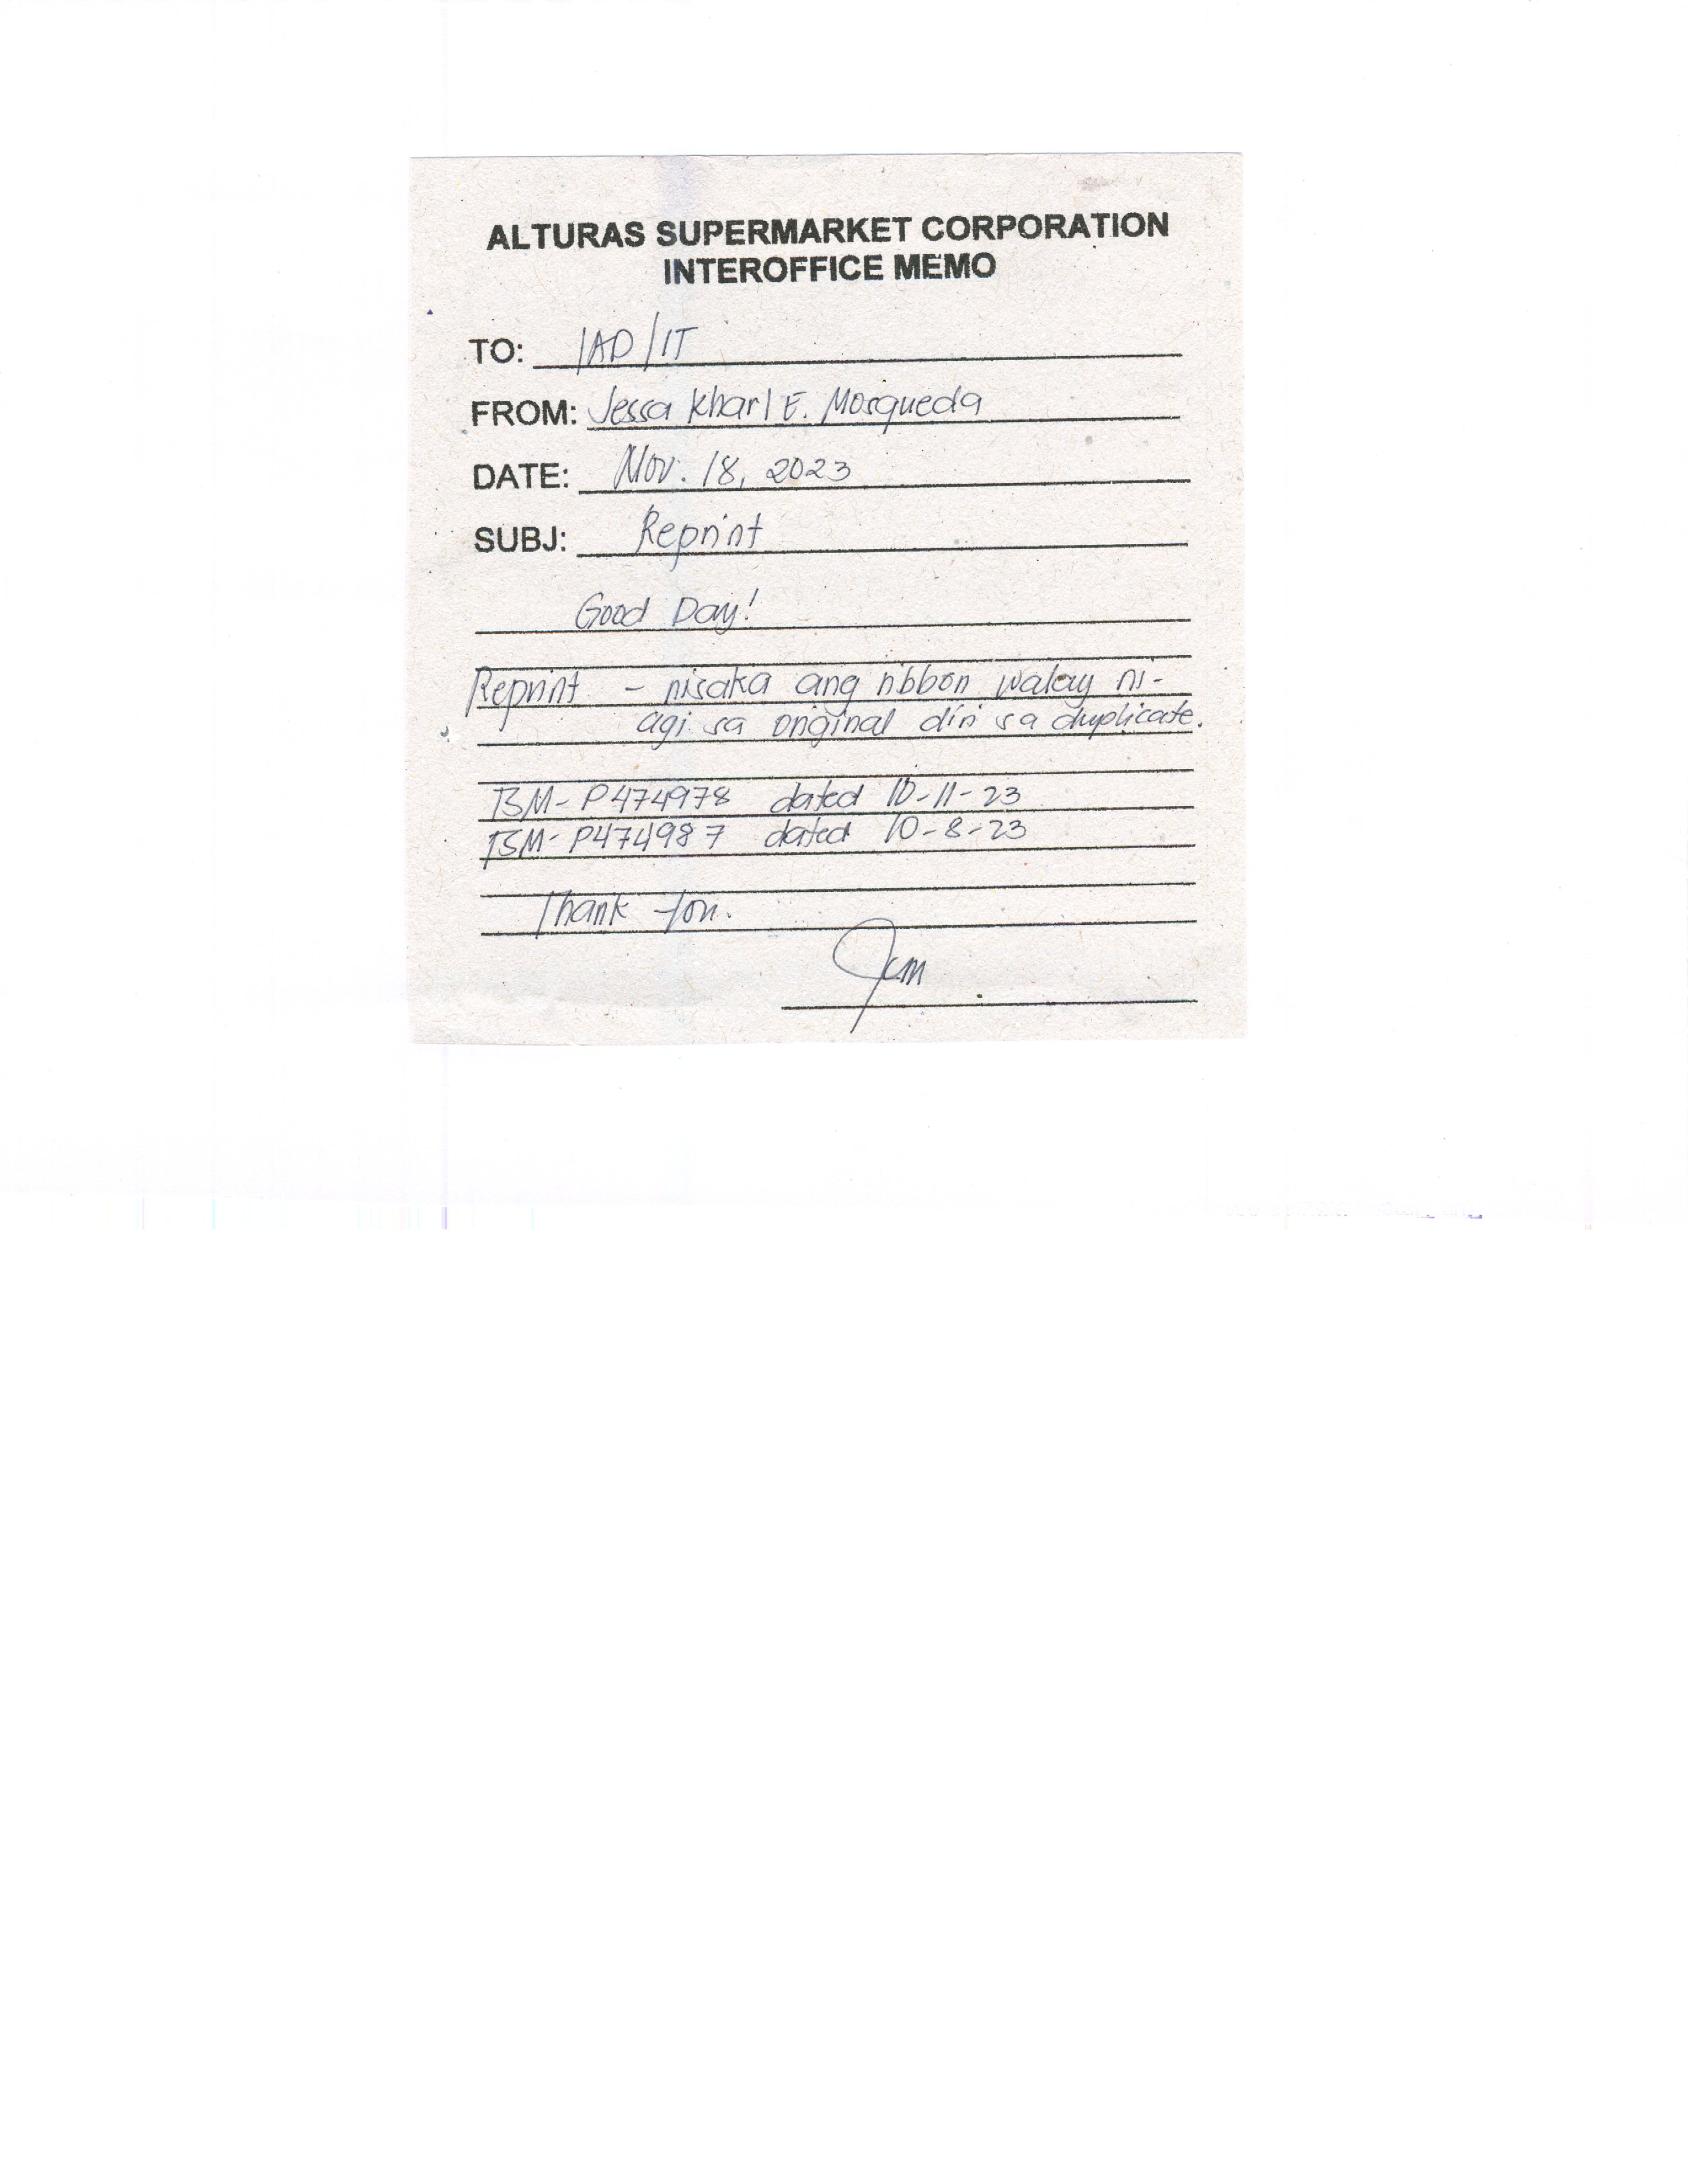 ALTURAS SUPERMARKET CORPORATION
INTEROFFICE MEMO
TO: IAD/IT
FROM: Jessa Kharl E. Mosqueda
DATE: Nov. 18, 2023
SUBJ: Reprint
Good Day!
Reprint - nisaka ang ribbon walay ni-
agi sa original diri sa duplicate.
BM- P474978 dated 10-11-23
BM- P474987 dated 10-8-23
Thank You.